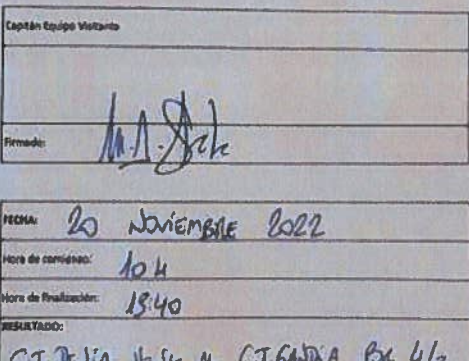 Capitán Equipo Visitante
Firmado:
FECHA: 20 NOVIEMBRE 2022
Hora de comienzo: 10 H
Hora de finalización:
RESULTADO:
CT DENIA CT GANDIA 4/2